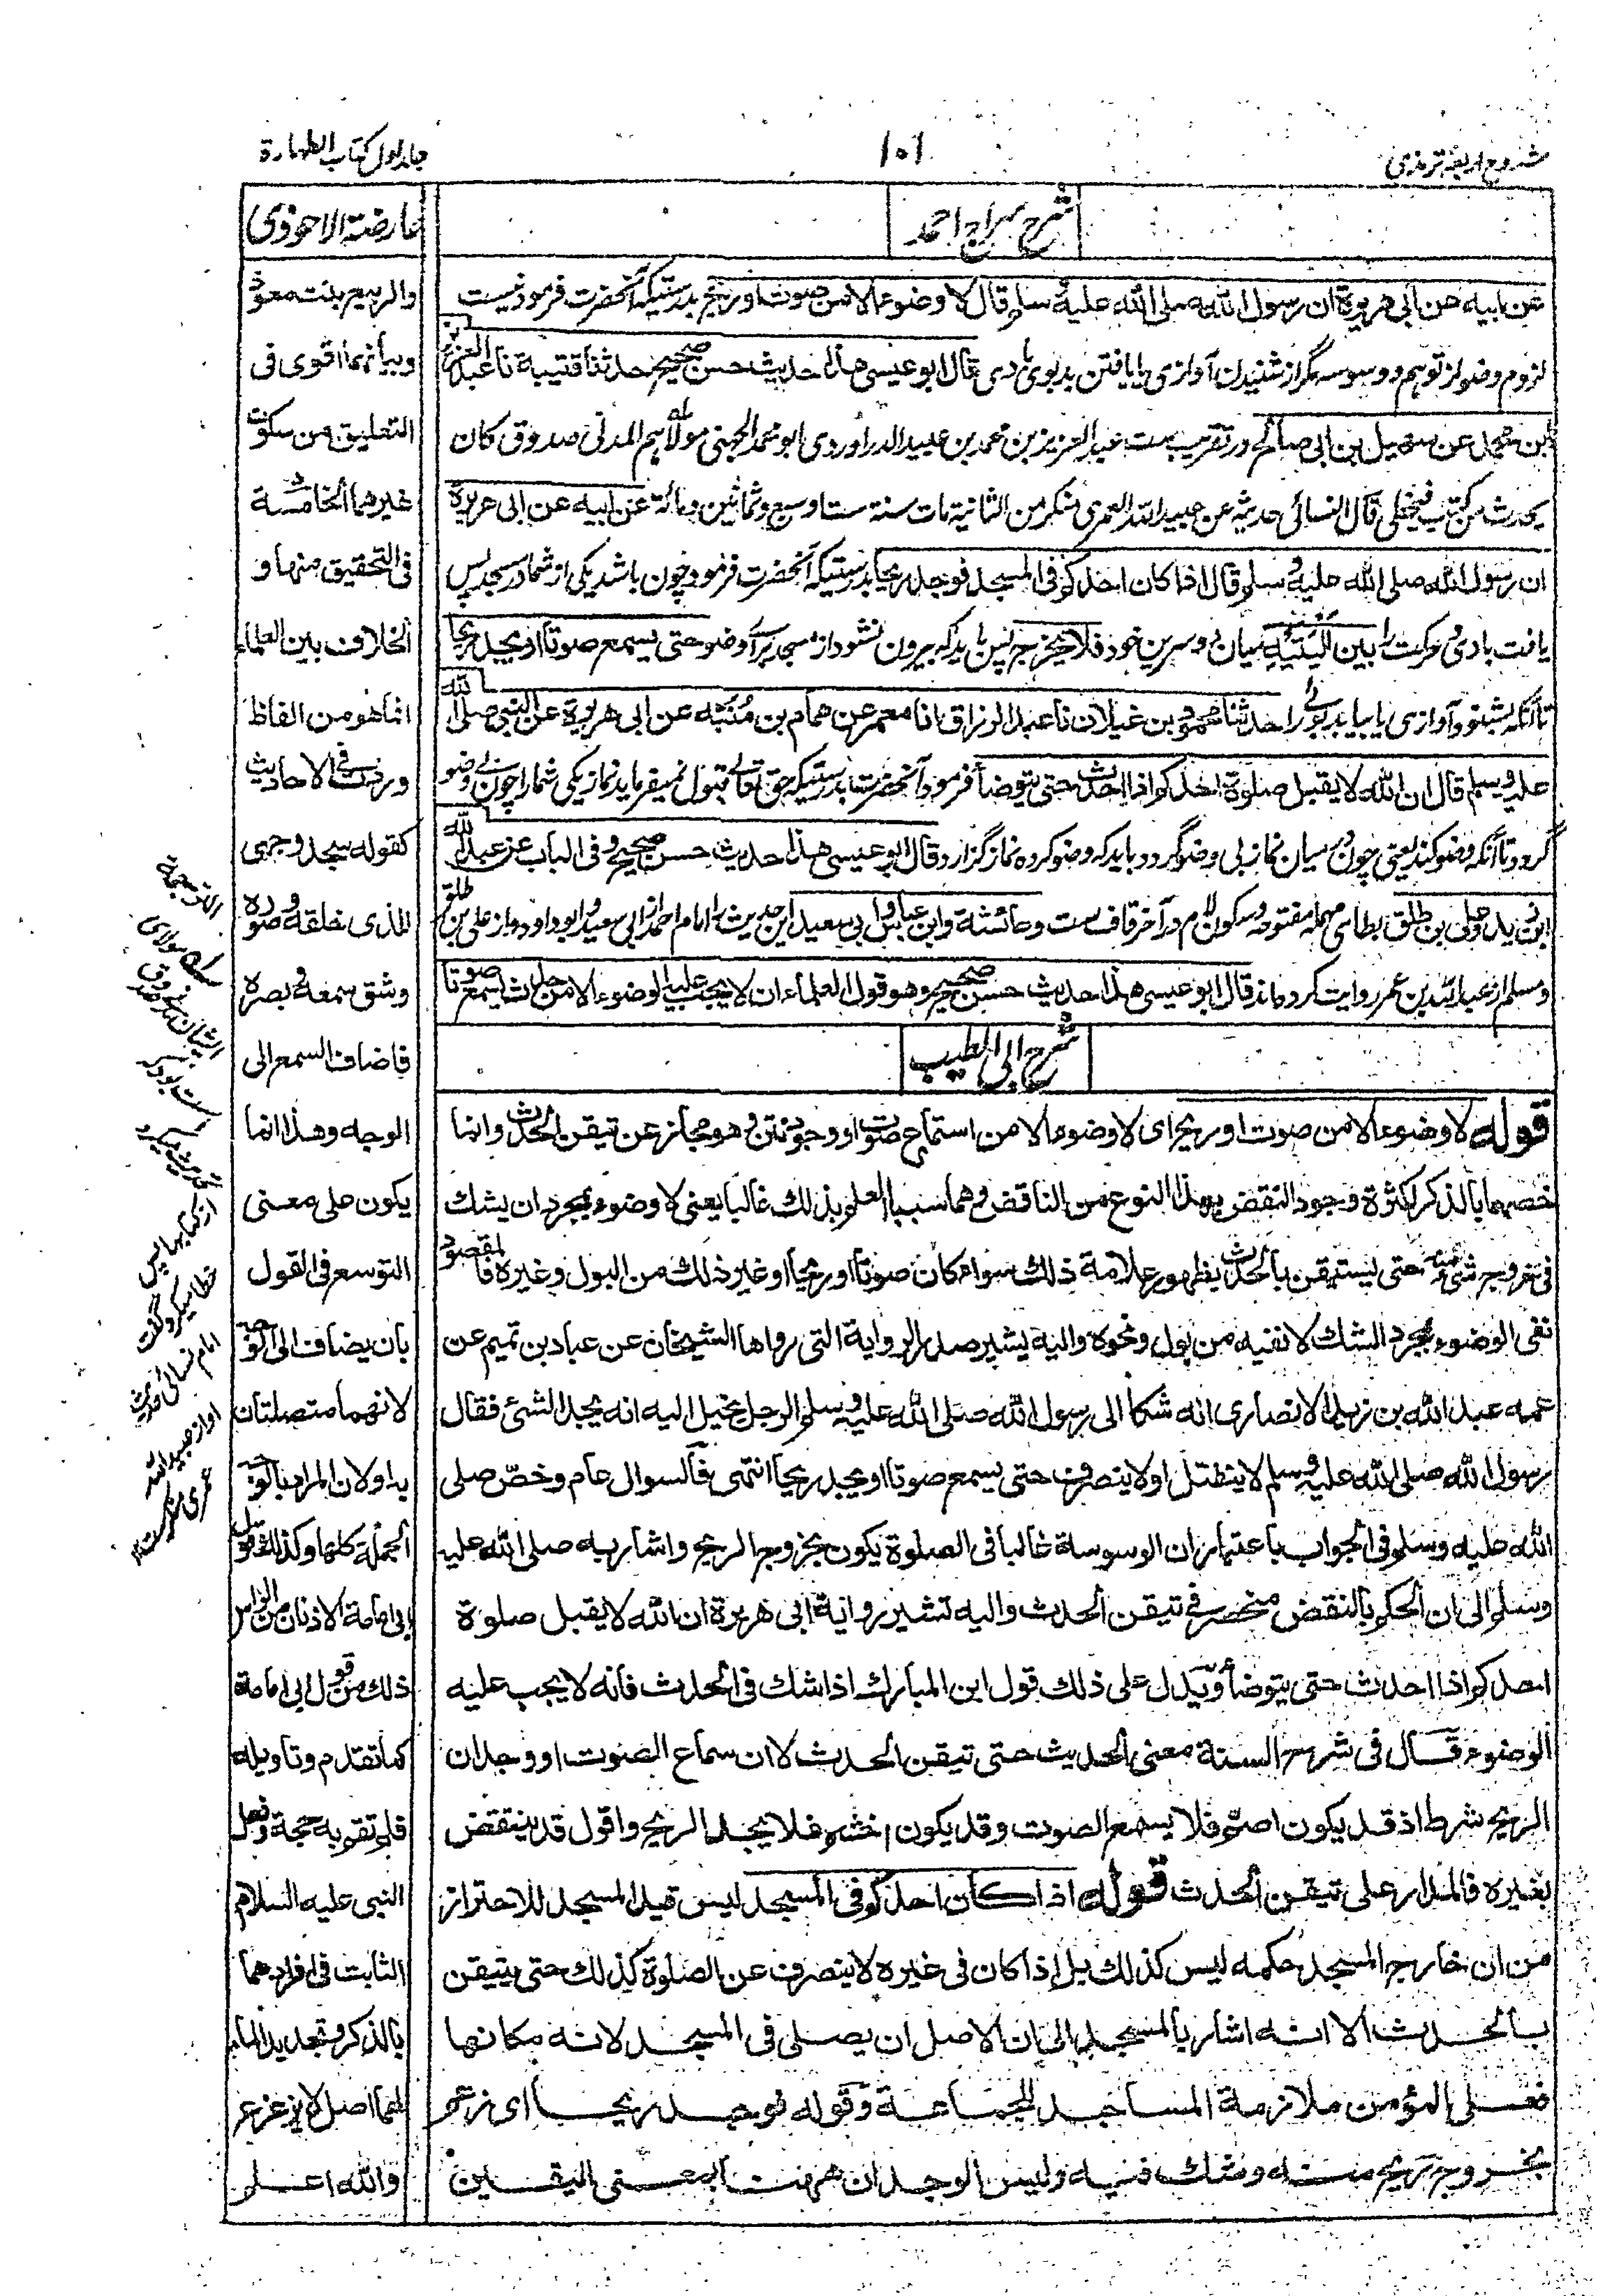 شروح اربعه ترمذی
۱۰۱
جلد اول کتاب الطهارة
شرح سراج احمد
عن ابیه عن ابی هریرة ان رسول الله صلی الله علیه وسلم قال لا وضوء الا من صوت او ریح بدرستیکه آنحضرت فرمود نیست
لزوم وضو از توهم و وسوسه مگر از شنیدن آوازی یا یافتن بدبوی بادی قال ابو عیسی هذا حدیث حسن صحیح حدثنا قتیبة نا عبد العزیز
ابن محمد عن سهیل بن ابی صالح در تقریب ست عبد العزیز بن محمد بن عبید الدراوردی ابو محمد الجهنی مولاهم المدنی صدوق کان
یحدث من کتب فیخطی قال النسائی حدیثه عن عبید الله العمری منکر من الثامنیة مات سنة ست او سبع وثمانین ومائة عن ابیه عن ابی هریرة
ان رسول الله صلی الله علیه وسلم قال اذا کان احدکم فی المسجد فوجد ریحا بدرستیکه آنحضرت فرمود چون باشد یکی از شما در مسجد پس
یافت بادی و حرکت را بین الیتیه میان دو سرین خود فلا یخرج پس باید که بیرون نشود از مسجد برای وضو حتی یسمع صوتا او یجد ریحا
تا آنکه بشنود آوازی یا بیابد بوئی را حدثنا محمود بن غیلان نا عبد الرزاق انا معمر عن همام بن منبه عن ابی هریرة عن النبی صلی الله
علیه وسلم قال ان الله لا یقبل صلوة احدکم اذا احدث حتی یتوضأ فرمود آنحضرت بدرستیکه حق تعالی قبول نمیفرماید نماز یکی شما را چون بی وضو
گردد تا آنکه وضو کند یعنی چون در میان نماز بی وضو گردد باید که وضو کرده نماز گزارد قال ابو عیسی هذا حدیث حسن صحیح وفی الباب عن عبد الله
ابن زید وعلی بن طلق بطای مهمله مفتوحه وسکون لام در آخر قاف ست وعائشة وابن عباس وابی سعید این حدیث را امام احمد از ابی سعید وابو داود از علی بن طلق
ومسلم از عبد الله بن عمر روایت کرده اند قال ابو عیسی هذا حدیث حسن صحیح وهو قول العلماء ان لا یجب علیه الوضوء الا من حدث یسمع صوتا
شرح ابی الطیب
قوله لا وضوء الا من صوت او ریح ای لا وضوء الا من استماع صوت او وجود نتن وهو مجاز عن تیقن الحدث وانما
خصهما بالذکر لکثرة وجود النقض بهذا النوع من الناقض وهما سببا العلم بذلک غالبا یعنی لا وضوء بمجرد ان یشک
فی خروج شیٔ منه حتی یستیقن بالحدث بظهور علامة ذلک سواء کان صوتا او ریحا او غیر ذلک من البول وغیره فالمقصود
نفی الوضوء بمجرد الشک لا نفیه من بول ونحوه والیه یشیر صدر الروایة التی رواها الشیخان عن عباد بن تمیم عن
عمه عبد الله بن زید الانصاری انه شکا الی رسول الله صلی الله علیه وسلم الرجل یخیل الیه انه یجد الشیٔ فقال
رسول الله صلی الله علیه وسلم لا ینفتل او لا ینصرف حتی یسمع صوتا او یجد ریحا انتهی فالسوال عام وخص صلی
الله علیه وسلم فی الجواب باعتبار ان الوسوسة غالبا فی الصلوة یکون بخروج الریح واشار به صلی الله علیه
وسلم الی ان الحکم بالنقض منحصر فی تیقن الحدث والیه تشیر روایة ابی هریرة ان الله لا یقبل صلوة
احدکم اذا احدث حتی یتوضأ ویدل علی ذلک قول ابن المبارک اذا شک فی الحدث فانه لا یجب علیه
الوضوء قال فی شرح السنة معنی الحدیث حتی تیقن الحدث لا ان سماع الصوت او وجدان
الریح شرط اذ قد یکون اصم فلا یسمع الصوت وقد یکون اخشم فلا یجد الریح واقول قد ینتقض
بغیره فالمدار علی تیقن الحدث قوله اذا کان احدکم فی المسجد لیس قید المسجد للاحتراز
من ان خارج المسجد حکمه لیس کذلک بل اذا کان فی غیره لا ینصرف عن الصلوة کذلک حتی یتیقن
بالحدث الا انه اشار بالمسجد الی ان الاصل ان یصلی فی المسجد لانه مکانها
فعلی المؤمن ملازمة المساجد للجماعة وقوله فوجد ریحا ای زعم
بخروج ریح منه وشک فیه ولیس الوجدان ههنا بمعنی الیقین
عارضة الاحوذی
والربیع بنت معوذ
وبیانهما اقوی فی
التعلیق من سکوت
غیرهما الخامسة
فی التحقیق منها و
الخلاف بین العلماء
انما هو من الفاظ
وردت فی الاحادیث
کقوله سجد وجهی
للذی خلقه وصوره
وشق سمعه وبصره
فاضاف السمع الی
الوجه وهذا انما
یکون علی معنی
التوسع فی القول
بان یضاف الی الوجه
لانهما متصلتان
به او لان المراد بالوجه
الجملة کلها وکذلک قول
ابی امامة الاذنان من الراس
ذلک من قول ابی امامة
کما تقدم وتاویله
فلم تقم به حجة وفعل
النبی علیه السلام
الثابت فی افرادهما
بالذکر وتجدید الماء
لهما اصل لا یزعزع
والله اعلم
از کتابهای پس
خطا میکرد گفت
امام نسائی حدیث
او از عبید الله
عمری منکر ست